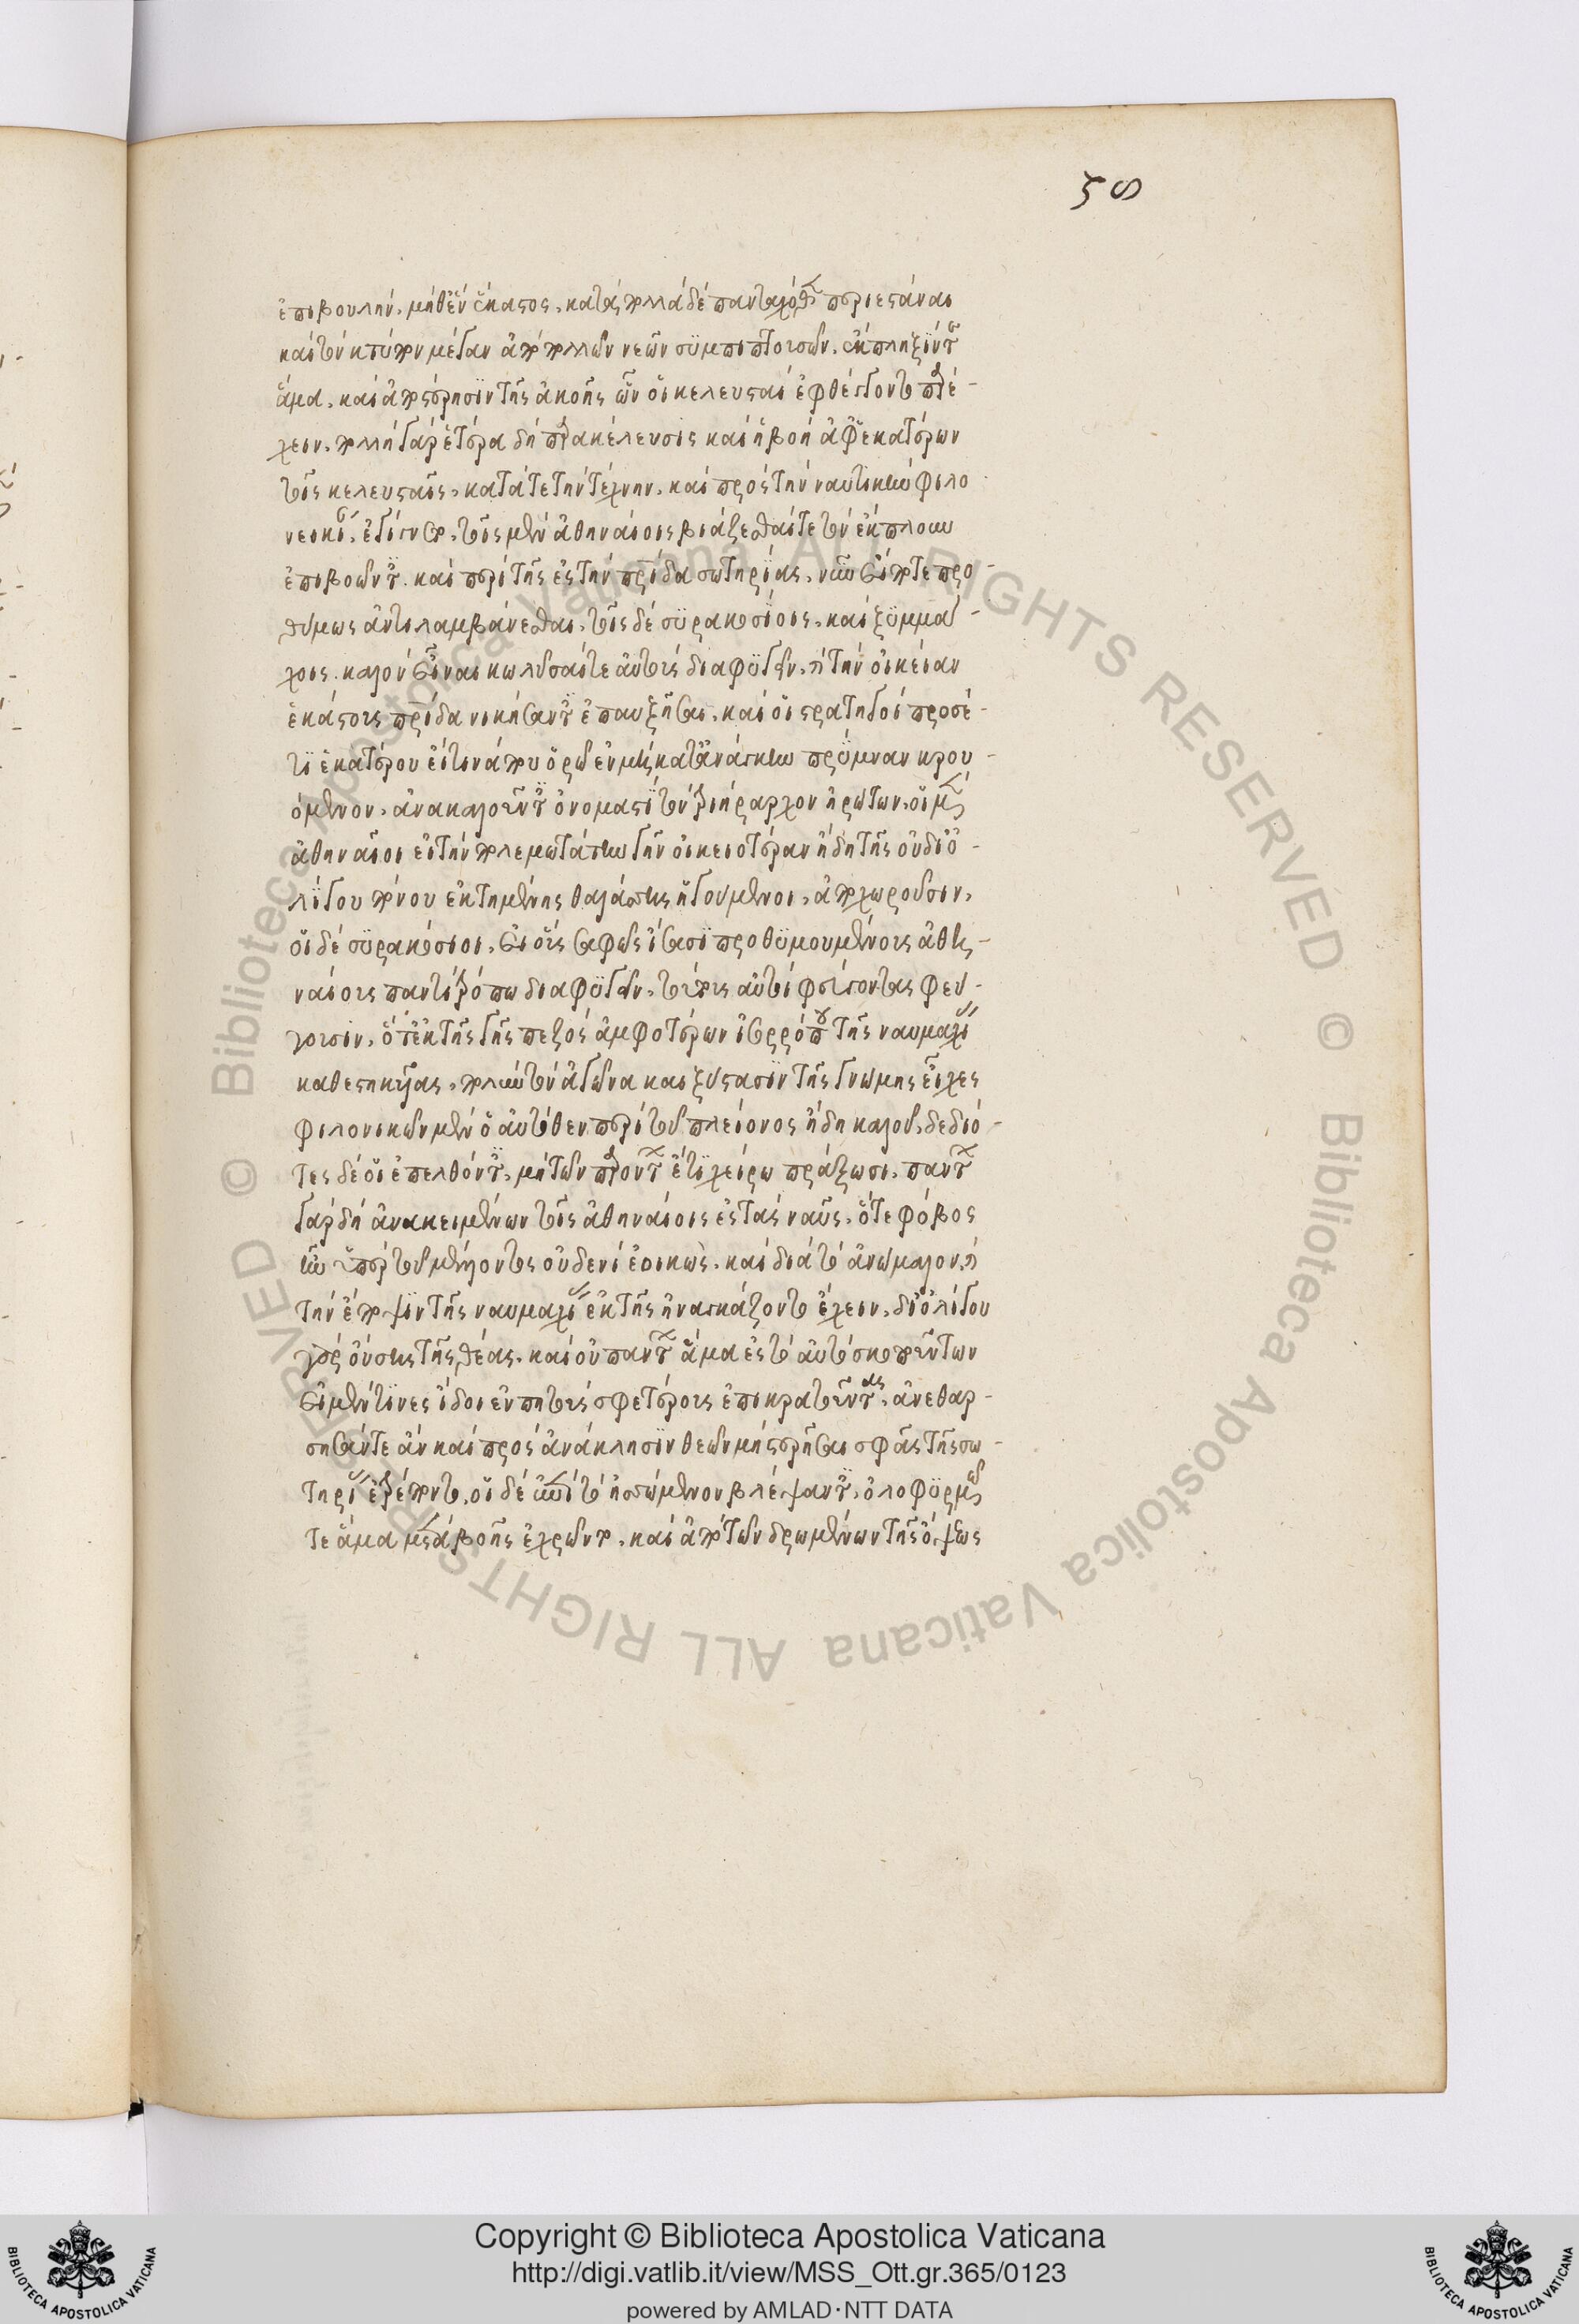 ϛ ϛ
ἐπιβουλήν. μηθὲν ἕκαστος. κατὰ πολλὰ δὲ πανταχόθεν περιεστάναι
καὶ τὸν κτύπον μέγαν ἀπὸ πολλῶν νεῶν συμπιπτουσῶν. ἐκπληξίν τε
ἅμα. καὶ ἀποστέρησιν τῆς ἀκοῆς ὧν οἱ κελευσταὶ ἐφθέγγοντο παρέ-
χειν. πολλὴ γὰρ ἑτέρα δὴ παρακέλευσις καὶ ἡ βοὴ ἀφ' ἑκατέρων
τοῖς κελευσταῖς. κατά τε τὴν τέχνην. καὶ πρὸς τὴν ναυτικὴν φιλο
νεικίαν. ἐγίγνετο. τοῖς μὲν ἀθηναίοις βιάζεσθαί τε τὸν ἔκπλουν
ἐπιβοῶντες. καὶ περὶ τῆς ἐς τὴν πατρίδα σωτηρίας. νῦν εἴποτε προ-
θύμως ἀντιλαμβάνεσθαι. τοῖς δὲ συρακοσίοις. καὶ ξυμμά-
χοις. καλὸν εἶναι κωλῦσαί τε αὐτοὺς διαφυγεῖν. καὶ τὴν οἰκείαν
ἑκάστους πατρίδα νικήσαντας ἐπαυξῆσαι. καὶ οἱ στρατηγοὶ προσέ-
τι ἑκατέρου εἴ τινά που ὁρῷεν μὴ κατ' ἀνάγκην πρύμναν κρου-
όμενον. ἀνακαλοῦντες ὀνομαστὶ τὸν τριήραρχον ἠρώτων. οἱ μὲν
ἀθηναῖοι εἰ τὴν πολεμιωτάτην γῆν οἰκειοτέραν ἤδη τῆς οὐ δι' ὀ-
λίγου πόνου ἐκτημένης θαλάσσης ἡγούμενοι. ἀποχωροῦσιν.
οἱ δὲ συρακόσιοι. εἰ οὓς σαφῶς ἴσασι προθυμουμένους ἀθη-
ναίους παντὶ τρόπῳ διαφυγεῖν. τούτους αὐτοὶ φεύγοντας φεύ-
γουσιν. ὅ τ' ἐκ τῆς γῆς πεζὸς ἀμφοτέρων ἰσορρόπου τῆς ναυμαχίας
καθεστηκυίας. πολὺν τὸν ἀγῶνα καὶ ξύστασιν τῆς γνώμης εἶχες
φιλονικῶν μὲν ὁ αὐτόθεν περὶ τοῦ πλείονος ἤδη καλοῦ. δεδιό-
τες δὲ οἱ ἐπελθόντες. μὴ τῶν παρόντων ἔτι χείρω πράξωσι. πάντων
γὰρ δὴ ἀνακειμένων τοῖς ἀθηναίοις ἐς τὰς ναῦς. ὅ τε φόβος
ἦν ὑπὲρ τοῦ μέλλοντος οὐδενὶ ἐοικώς. καὶ διὰ τὸ ἀνώμαλον. καὶ
τὴν ἔποψιν τῆς ναυμαχίας ἐκ τῆς ἠναγκάζοντο ἔχειν. δι' ὀλίγου
γὰρ οὔσης τῆς θέας. καὶ οὐ πάντων ἅμα ἐς τὸ αὐτὸ σκοπούντων
εἰ μέν τινες ἴδοιέν πῃ τοὺς σφετέρους ἐπικρατοῦντας. ἀνεθάρ-
σησάν τε ἂν καὶ πρὸς ἀνάκλησιν θεῶν μὴ στερῆσαι σφᾶς τῆς σω-
τηρίας ἐτρέποντο. οἱ δὲ ἐπὶ τὸ ἡσσώμενον βλέψαντες. ὀλοφυρμῷ
τε ἅμα μετὰ βοῆς ἐχρῶντο. καὶ ἀπὸ τῶν δρωμένων τῆς ὄψεως
© Biblioteca Apostolica Vaticana ALL RIGHTS RESERVED © Biblioteca Apostolica Vaticana ALL RIGHTS RESERVED
Copyright © Biblioteca Apostolica Vaticana
http://digi.vatlib.it/view/MSS_Ott.gr.365/0123
powered by AMLAD·NTT DATA
BIBLIOTECA APOSTOLICA VATICANA
BIBLIOTECA APOSTOLICA VATICANA